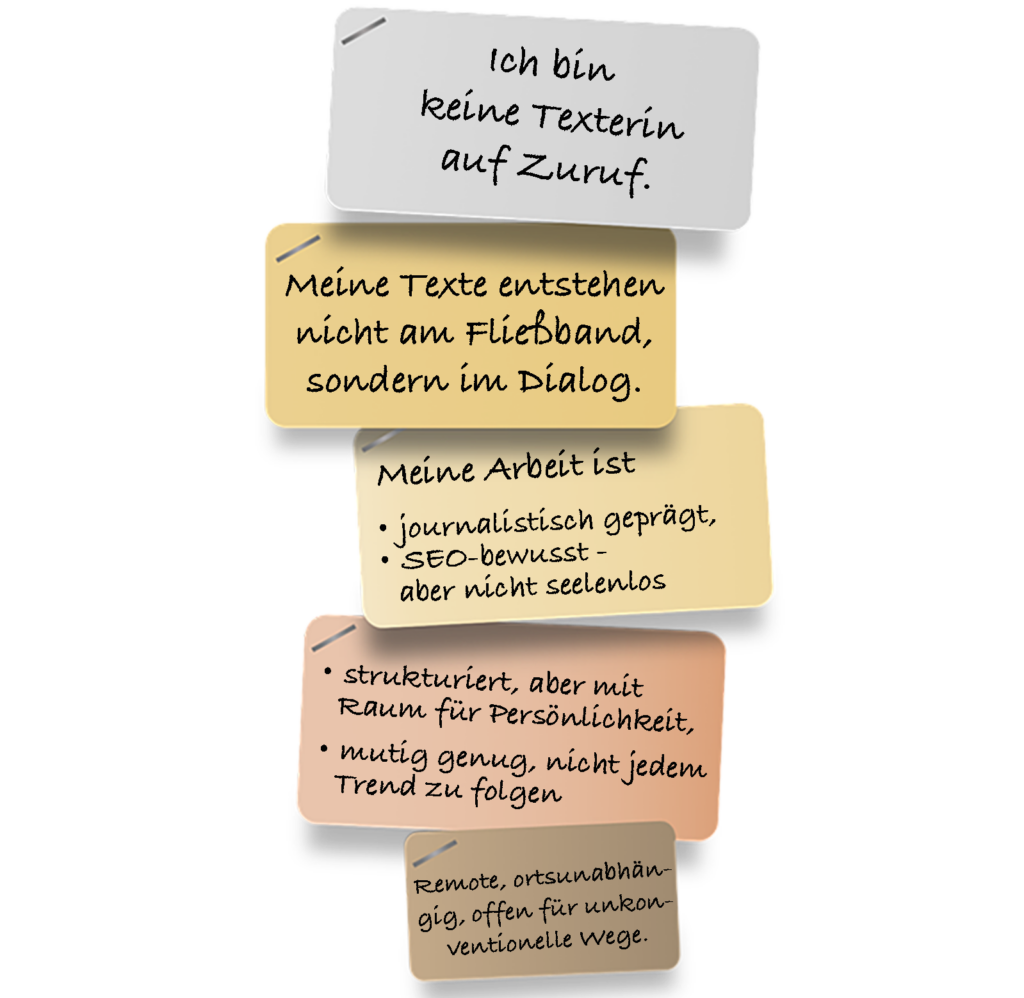 Ich bin
keine Texterin
auf Zuruf.
Meine Texte entstehen
nicht am Fließband,
sondern im Dialog.
Meine Arbeit ist
• journalistisch geprägt,
• SEO-bewusst -
aber nicht seelenlos
• strukturiert, aber mit
Raum für Persönlichkeit,
• mutig genug, nicht jedem
Trend zu folgen
Remote, ortsunabhän-
gig, offen für unkon-
ventionelle Wege.